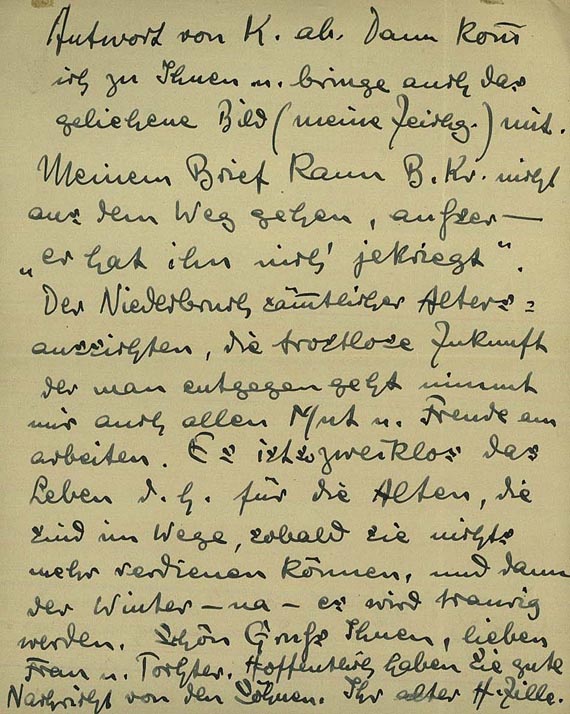 Antwort von K. ab. Dann kom̄
ich zu Ihnen u. bringe auch das
geliehene Bild (meine Zeichg.) mit.
Meinem Brief kann B. Kr. nicht
aus dem Weg gehen, aufser —
„er hat ihn nich' jekriegt".
Der Niederbruch säm̄tlicher Alters=
aussichten, die trostlose Zukunft
der man entgegen geht nimmt
mir auch allen Mut u. Freude am
arbeiten. Es ist so zwecklos das
Leben d. h. für die Alten, die
sind im Wege, sobald sie nichts
mehr verdienen können, und dann
der Winter – na – es wird traurig
werden. Schön Grufs Ihnen, lieben
Frau u. Tochter. Hoffentlich haben Sie gute
Nachricht von den Söhnen. Ihr alter H. Zille.